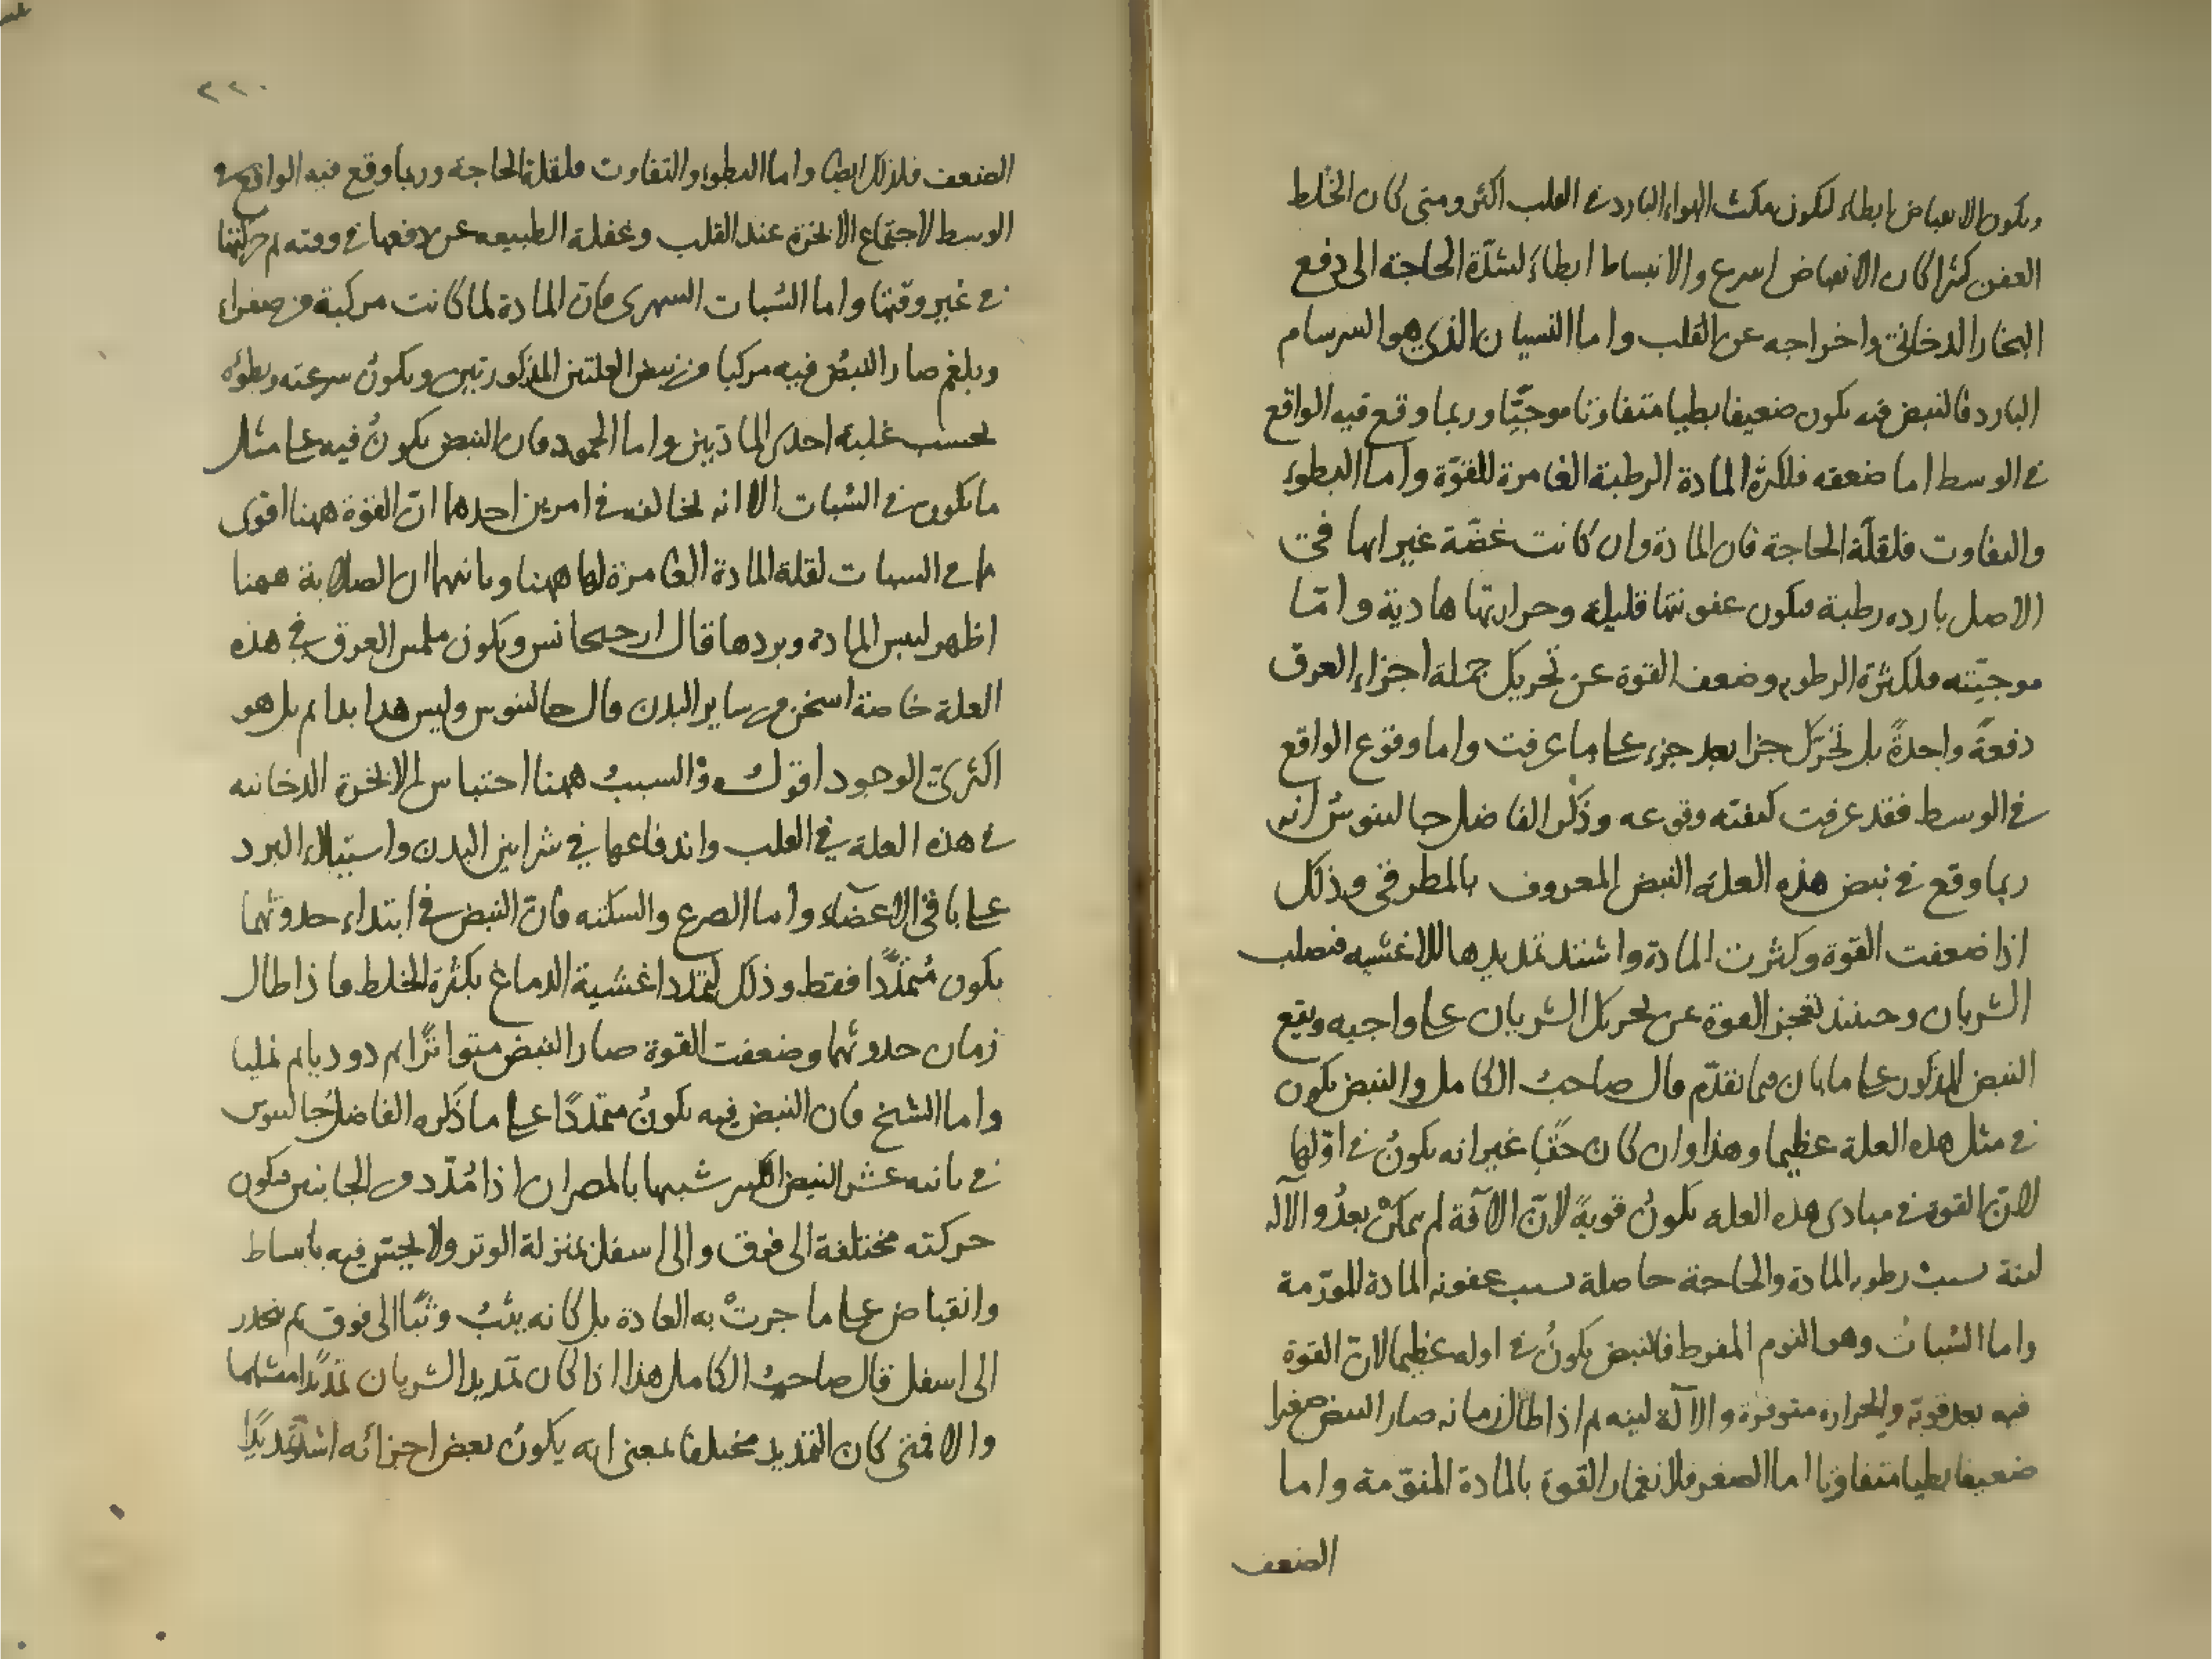 ويكون الانقباض ابطاء ليكون مكث الهواء البارد في القلب اكثر ومتى كان الخلط
العفن كثيرا كان الانقباض اسرع والانبساط ابطاءَ لشدّة الحاجة الى دفع
البخار الدخاني واخراجه عن القلب واما النسيان الذي هو السرسام
البارد فالنبض فيه يكون ضعيفا بطيا متفاوتا موجيًّا وربما وقع فيه الواقع
في الوسط اما ضعفه فلكثرة المادة الرطبة الغامرة للقوّة واما البطوء
والتفاوت فلقلّة الحاجة فان المادة وان كانت عفنة غير انها في
الاصل بارده رطبة فيكون عفونتها قليلة وحرارتها هادية وامّا
موجيّته فلكثرة الرطوبه وضعف القوة عن تحريك جملة اجزاء العرق
دفعةً واحدةً بل تحرّك جزا بعد جزء على ما عرفت واما وقوع الواقع
في الوسط فقد عرفت كيفيته وقوعه وذكر الفاضل جالينوسُ انه
ربما وقع في نبض هذه العلة النبض المعروف بالمطرقي وذلك
اذا ضعفت القوة وكثرت المادة واشتد تمديدها للاغشيه فتصلب
الشريان وحينئذ تعجز القوة عن تحريك الشريان على واجبه ويقع
النبض المذكور على ما بان فيما تقدّم قال صاحبُ الكامل والنبض يكون
في مثل هذه العلة عظيما وهذا وان كان حقًّا غير انه يكونُ في اوّلها
لانّ القوة في مبادى هذه العله يكونُ قويةً لانّ الآفة لم تتمكنْ بعدُ والآله
لينة بسبب رطوبه المادة والحاجة حاصلة بسبب عفونه المادة المورّمة
واما السُبات وهو النوم المفرط فالنبض يكونُ في اوله عظيما لان القوة
فيه بعد قويّة والحراره متوفرة والآلة لينه ثم اذا طال زمانه صار النبض صغيرا
ضعيفا بطيا متفاوتا اما الصغر فلانغمار القوة بالمادة المنوّمة واما
الضعف
٢٢٠
الضعف فلذلك ايضا واما البطوء والتفاوت فلقلة الحاجة وربما وقع فيه الواقع في
الوسط لاجتماع الابخرة عند القلب وغفلة الطبيعه عن دفعها في وقته ثم حركتها
في غير وقتها واما السُبات السهرى فانّ المادة لما كانت مركبة من صفراء
وبلغم صار النبضُ فيه مركبا من نبض العلتين المذكورتين ويكونُ سرعته وبطوءه
بحسب غلبة احدى المادتين واما الجمود فان النبض يكونُ فيه على مثال
ما يكون في السُبات الا انه يخالفه في امرين احدهما انّ القوة ههنا اقوى
ما في السبات لقلة المادة الغامرة لها ههنا وثانيهما ان الصلابة ههنا
اظهر ليبس المادة وبردها قال ارجيجانس ويكون ملمس العرق في هذه
العلة خاصة اسخن من ساير البدن قال جالينوس وليس هذا بدايم بل هو
اكثرىّ الوجود اقول والسببُ ههنا احتباس الابخرة الدخانيه
في هذه العلة في القلب واندفاعها في شرايين البدن واستيلاء البرد
على باقي الاعضاء واما الصرع والسكته فانّ النبض في ابتداء حدوثهما
يكون مُتمدّدًا فقط وذلك لتمدد اغشية الدماغ بكثرة الخلط فاذا طال
زمان حدوثهما وضعفت القوة صار النبض متواترًا ثم دوديا ثم نمليا
واما التشنج فان النبض فيه يكونُ متمدّدًا على ما ذكره الفاضلُ جالينوس
في ثانيه عشر النبض الكبير شبيها بالمصران اذا مُدّد من الجانبين فيكون
حركته مختلفة الى فوق والى اسفل بمنزلة الوتر ولا يحسّ فيه بانبساط
وانقباض على ما جرتْ به العادة بل كانه يثبُ وثبًا الى فوق ثم ينحدر
الى اسفل قال صاحبُ الكامل هذا اذا كان تمديد الشريان تمديدًا متشابها
والا فمتى كان التمديد مختلفا بمعنى انه يكونُ بعض اجزائه اشدّ تمديدًا